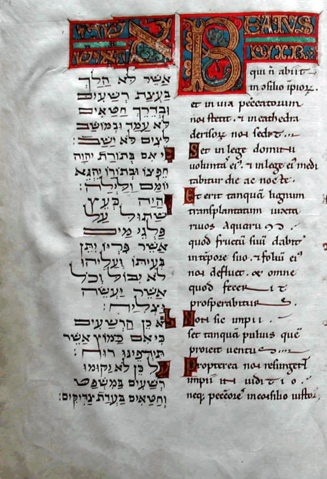 אשר לא הלך
בעצת רשעים
ובדרך חטאים
לא עמד ובמושב
לצים לא ישב:
כי אם בתורת יהוה
חפצו ובתורתו יהגה
יומם ולילה:
והיה כעץ
שתול על
פלגי מים
אשר פריו יתן
בעיתו ועליהו
לא יבול וכל
אשר יעשה
יצליח:
לא כן הרשעים
כי אם כמוץ אשר
תידפינו רוח:
על כן לא יקומו
רשעים במשפט
וחטאים בעדת צדיקים:
BEATUS
VIR
qui n̄ abiit
in ɔsilio ipiorꝝ
et in via peccatorum
nō stetit. ⁊ in cathedra
derisorꝝ nō sedit
Set in lege domini
voluntas ei⁹. ⁊ in lege ei⁹ medi
tabitur die ac nocte
Et erit tanquā lignum
transplantatum iuxta
rivos aquarū
quod fructū suū dabit
in tēpore suo ⁊ foliū ei⁹
nō defluet. et omne
quod fecerit
prosperabitur
Non sic impii.
set tanquā pulvis quē
proicit ventus
Propterea nō resurgent
impii in iuditio
neqꝫ peccōres in consilio iustoꝝ